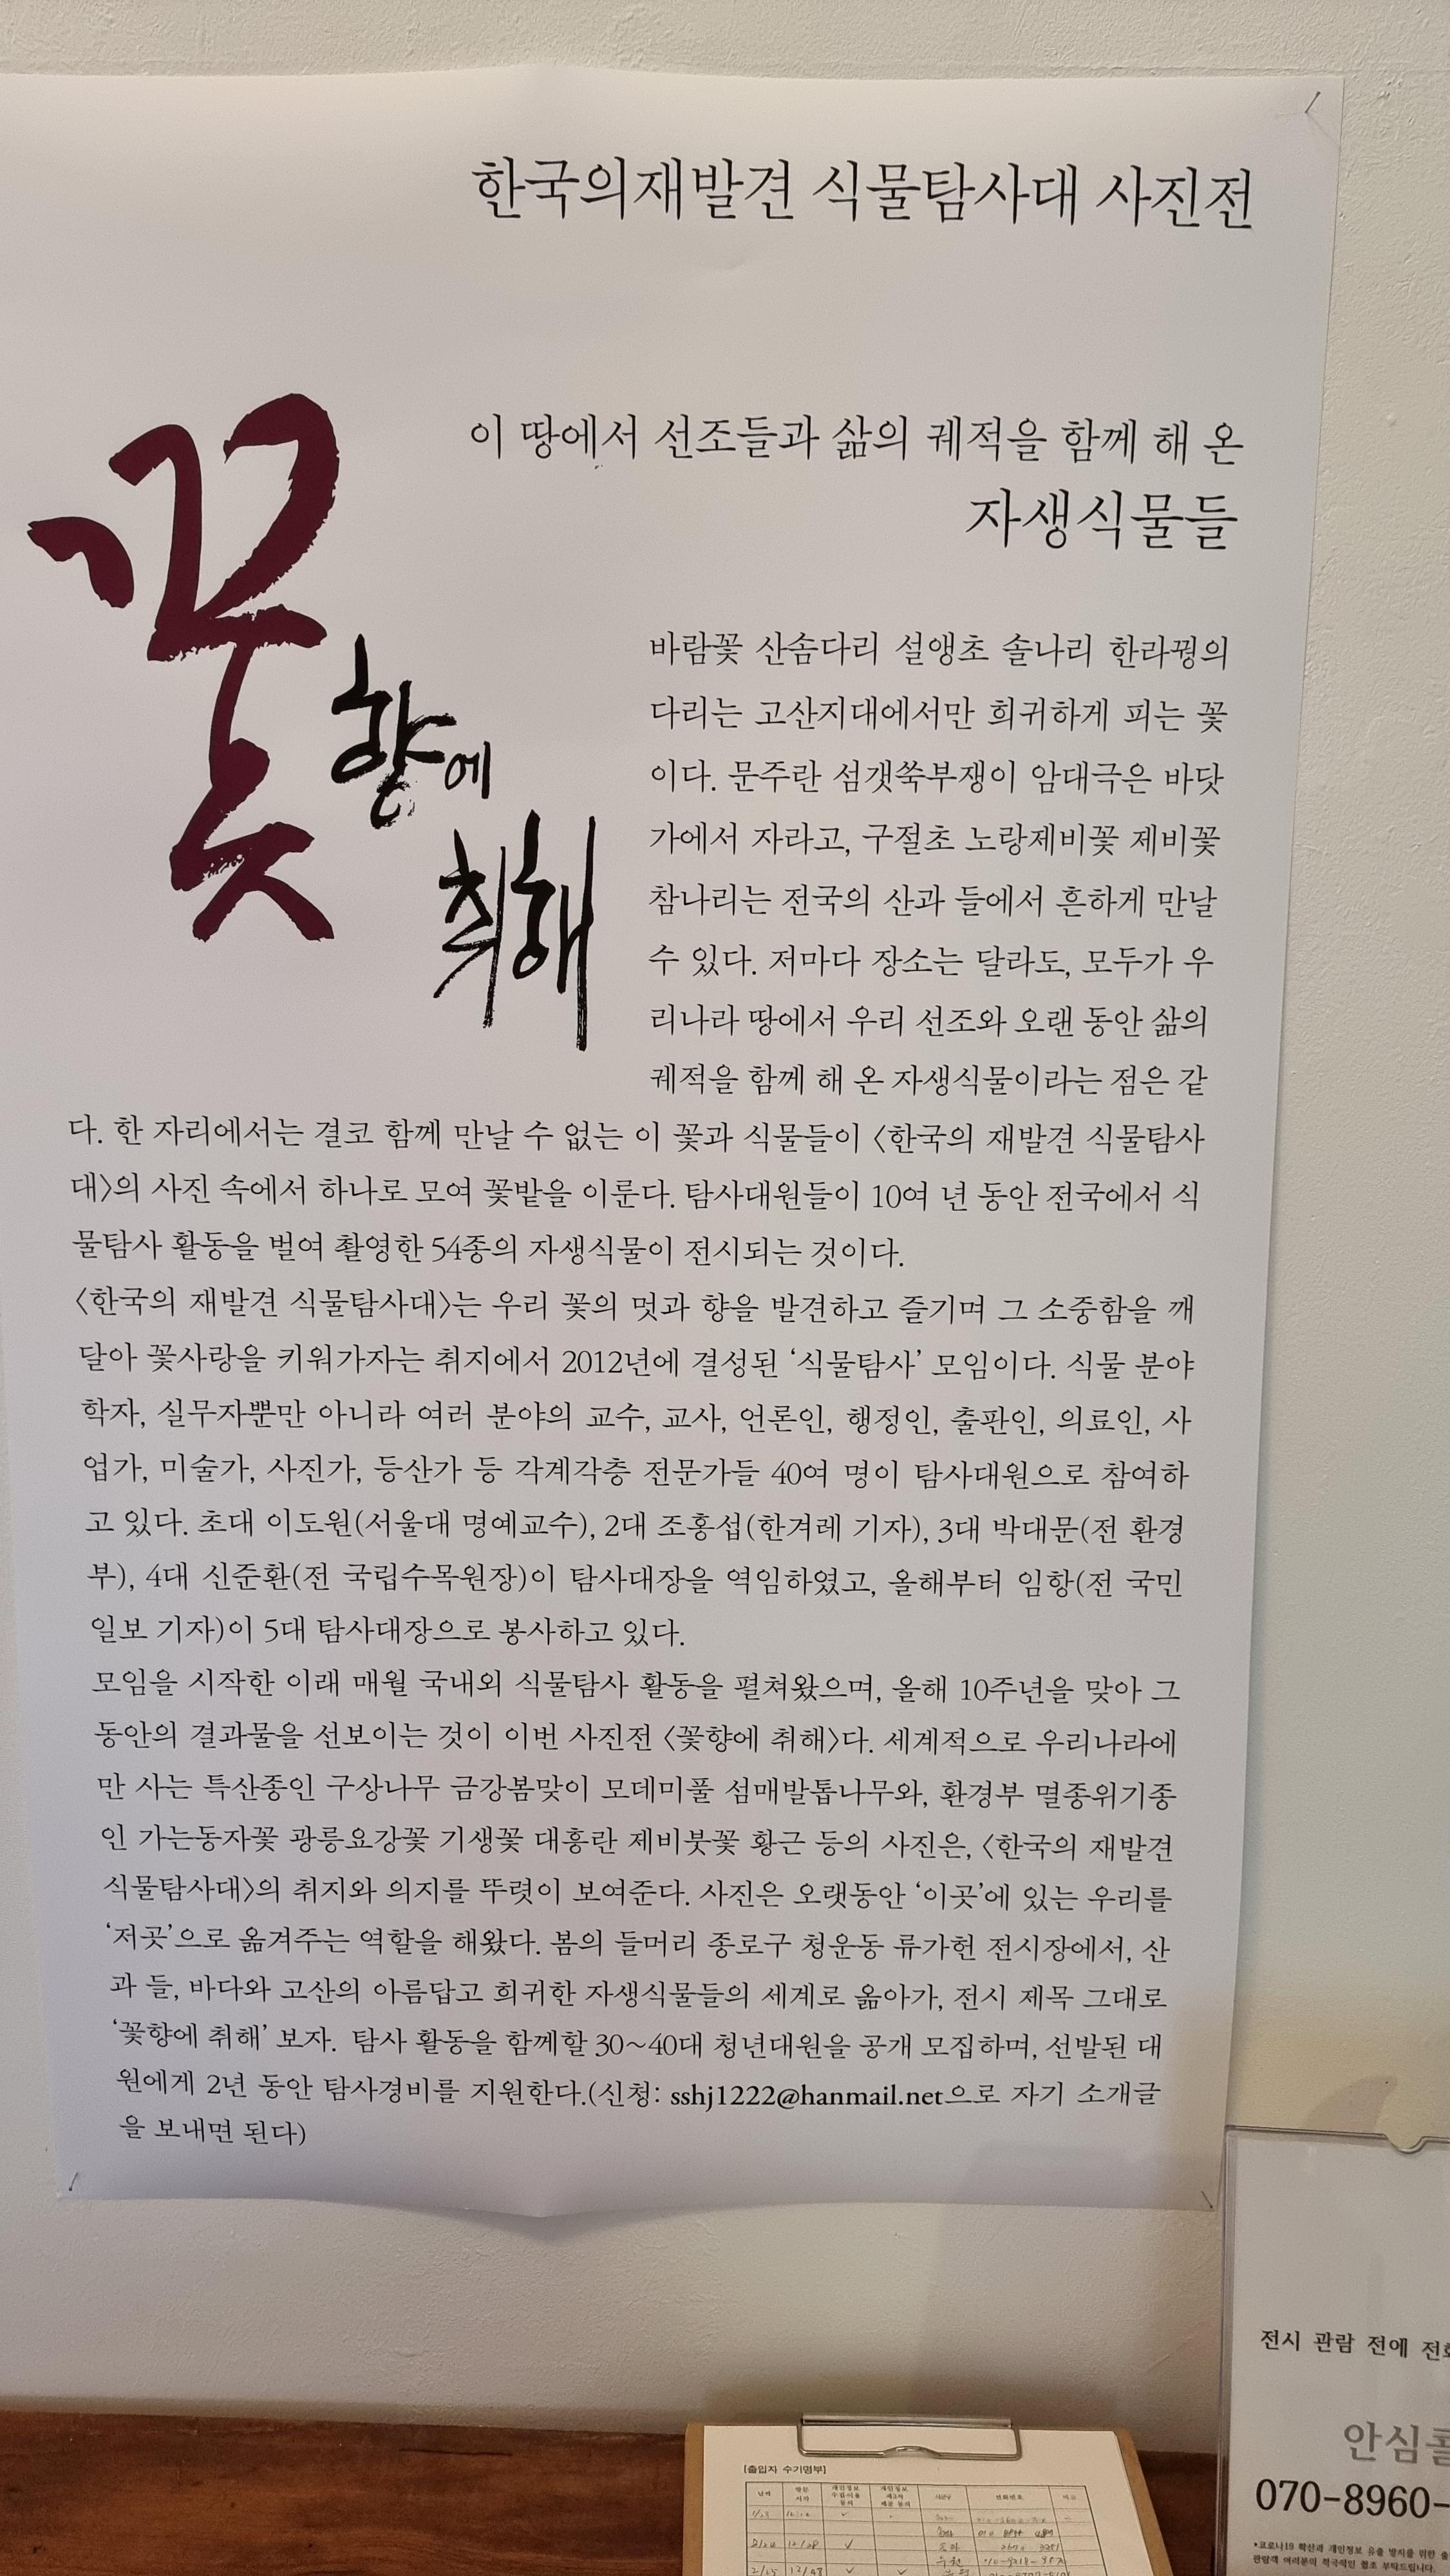 한국의재발견 식물탐사대 사진전
이 땅에서 선조들과 삶의 궤적을 함께 해 온
자생식물들
꽃
향에
취해
바람꽃 산솜다리 설앵초 솔나리 한라꿩의
다리는 고산지대에서만 희귀하게 피는 꽃
이다. 문주란 섬갯쑥부쟁이 암대극은 바닷
가에서 자라고, 구절초 노랑제비꽃 제비꽃
참나리는 전국의 산과 들에서 흔하게 만날
수 있다. 저마다 장소는 달라도, 모두가 우
리나라 땅에서 우리 선조와 오랜 동안 삶의
궤적을 함께 해 온 자생식물이라는 점은 같
다. 한 자리에서는 결코 함께 만날 수 없는 이 꽃과 식물들이 〈한국의 재발견 식물탐사
대〉의 사진 속에서 하나로 모여 꽃밭을 이룬다. 탐사대원들이 10여 년 동안 전국에서 식
물탐사 활동을 벌여 촬영한 54종의 자생식물이 전시되는 것이다.
〈한국의 재발견 식물탐사대〉는 우리 꽃의 멋과 향을 발견하고 즐기며 그 소중함을 깨
달아 꽃사랑을 키워가자는 취지에서 2012년에 결성된 ‘식물탐사’ 모임이다. 식물 분야
학자, 실무자뿐만 아니라 여러 분야의 교수, 교사, 언론인, 행정인, 출판인, 의료인, 사
업가, 미술가, 사진가, 등산가 등 각계각층 전문가들 40여 명이 탐사대원으로 참여하
고 있다. 초대 이도원(서울대 명예교수), 2대 조홍섭(한겨레 기자), 3대 박대문(전 환경
부), 4대 신준환(전 국립수목원장)이 탐사대장을 역임하였고, 올해부터 임항(전 국민
일보 기자)이 5대 탐사대장으로 봉사하고 있다.
모임을 시작한 이래 매월 국내외 식물탐사 활동을 펼쳐왔으며, 올해 10주년을 맞아 그
동안의 결과물을 선보이는 것이 이번 사진전 〈꽃향에 취해〉다. 세계적으로 우리나라에
만 사는 특산종인 구상나무 금강봄맞이 모데미풀 섬매발톱나무와, 환경부 멸종위기종
인 가는동자꽃 광릉요강꽃 기생꽃 대흥란 제비붓꽃 황근 등의 사진은, 〈한국의 재발견
식물탐사대〉의 취지와 의지를 뚜렷이 보여준다. 사진은 오랫동안 ‘이곳’에 있는 우리를
‘저곳’으로 옮겨주는 역할을 해왔다. 봄의 들머리 종로구 청운동 류가헌 전시장에서, 산
과 들, 바다와 고산의 아름답고 희귀한 자생식물들의 세계로 옮아가, 전시 제목 그대로
‘꽃향에 취해’ 보자. 탐사 활동을 함께할 30~40대 청년대원을 공개 모집하며, 선발된 대
원에게 2년 동안 탐사경비를 지원한다.(신청: sshj1222@hanmail.net으로 자기 소개글
을 보내면 된다)
전시 관람 전에
안심콜
070-8960-
*코로나19 확산과 개인정보 유출 방지를 위한
관람객 여러분의 적극적인 협조 부탁드립니다.
[출입자 수기명부]